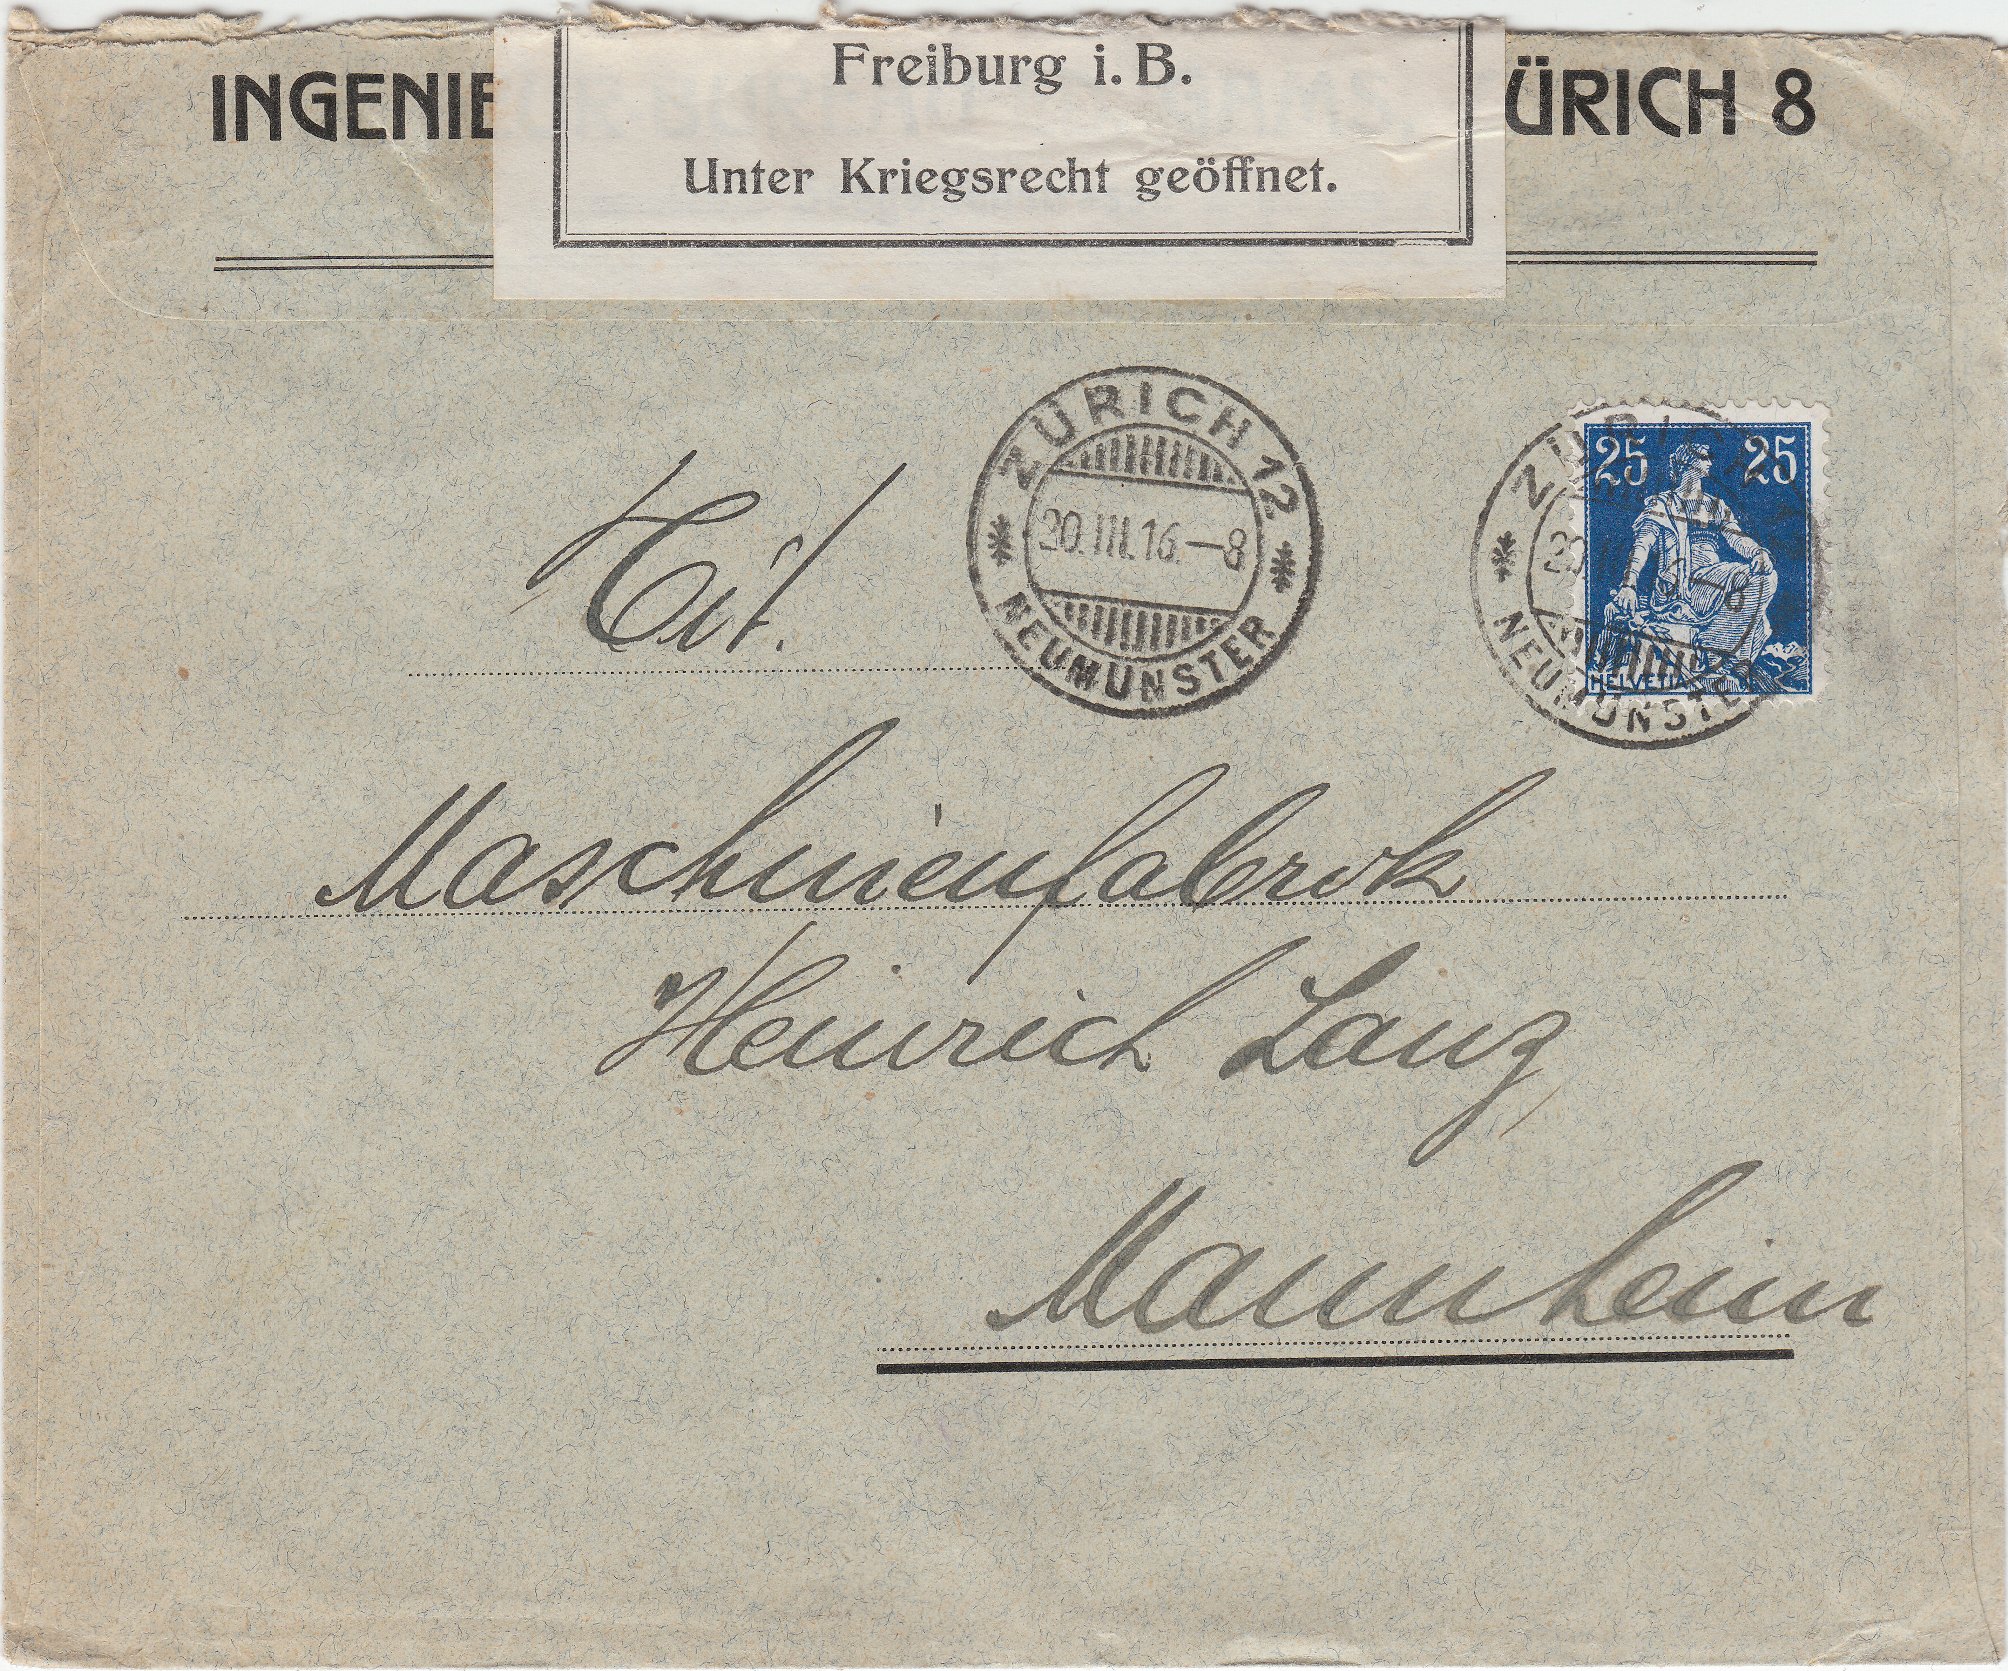 Freiburg i. B.
INGENIE ÜRICH 8
Unter Kriegsrecht geöffnet.
ZÜRICH 12
20.III.16.–8
NEUMÜNSTER
25 25
HELVETIA
ZÜRICH 12
20.III.16.–8
NEUMÜNSTER
Tit.
Maschinenfabrik
Heinrich Lanz
Mannheim